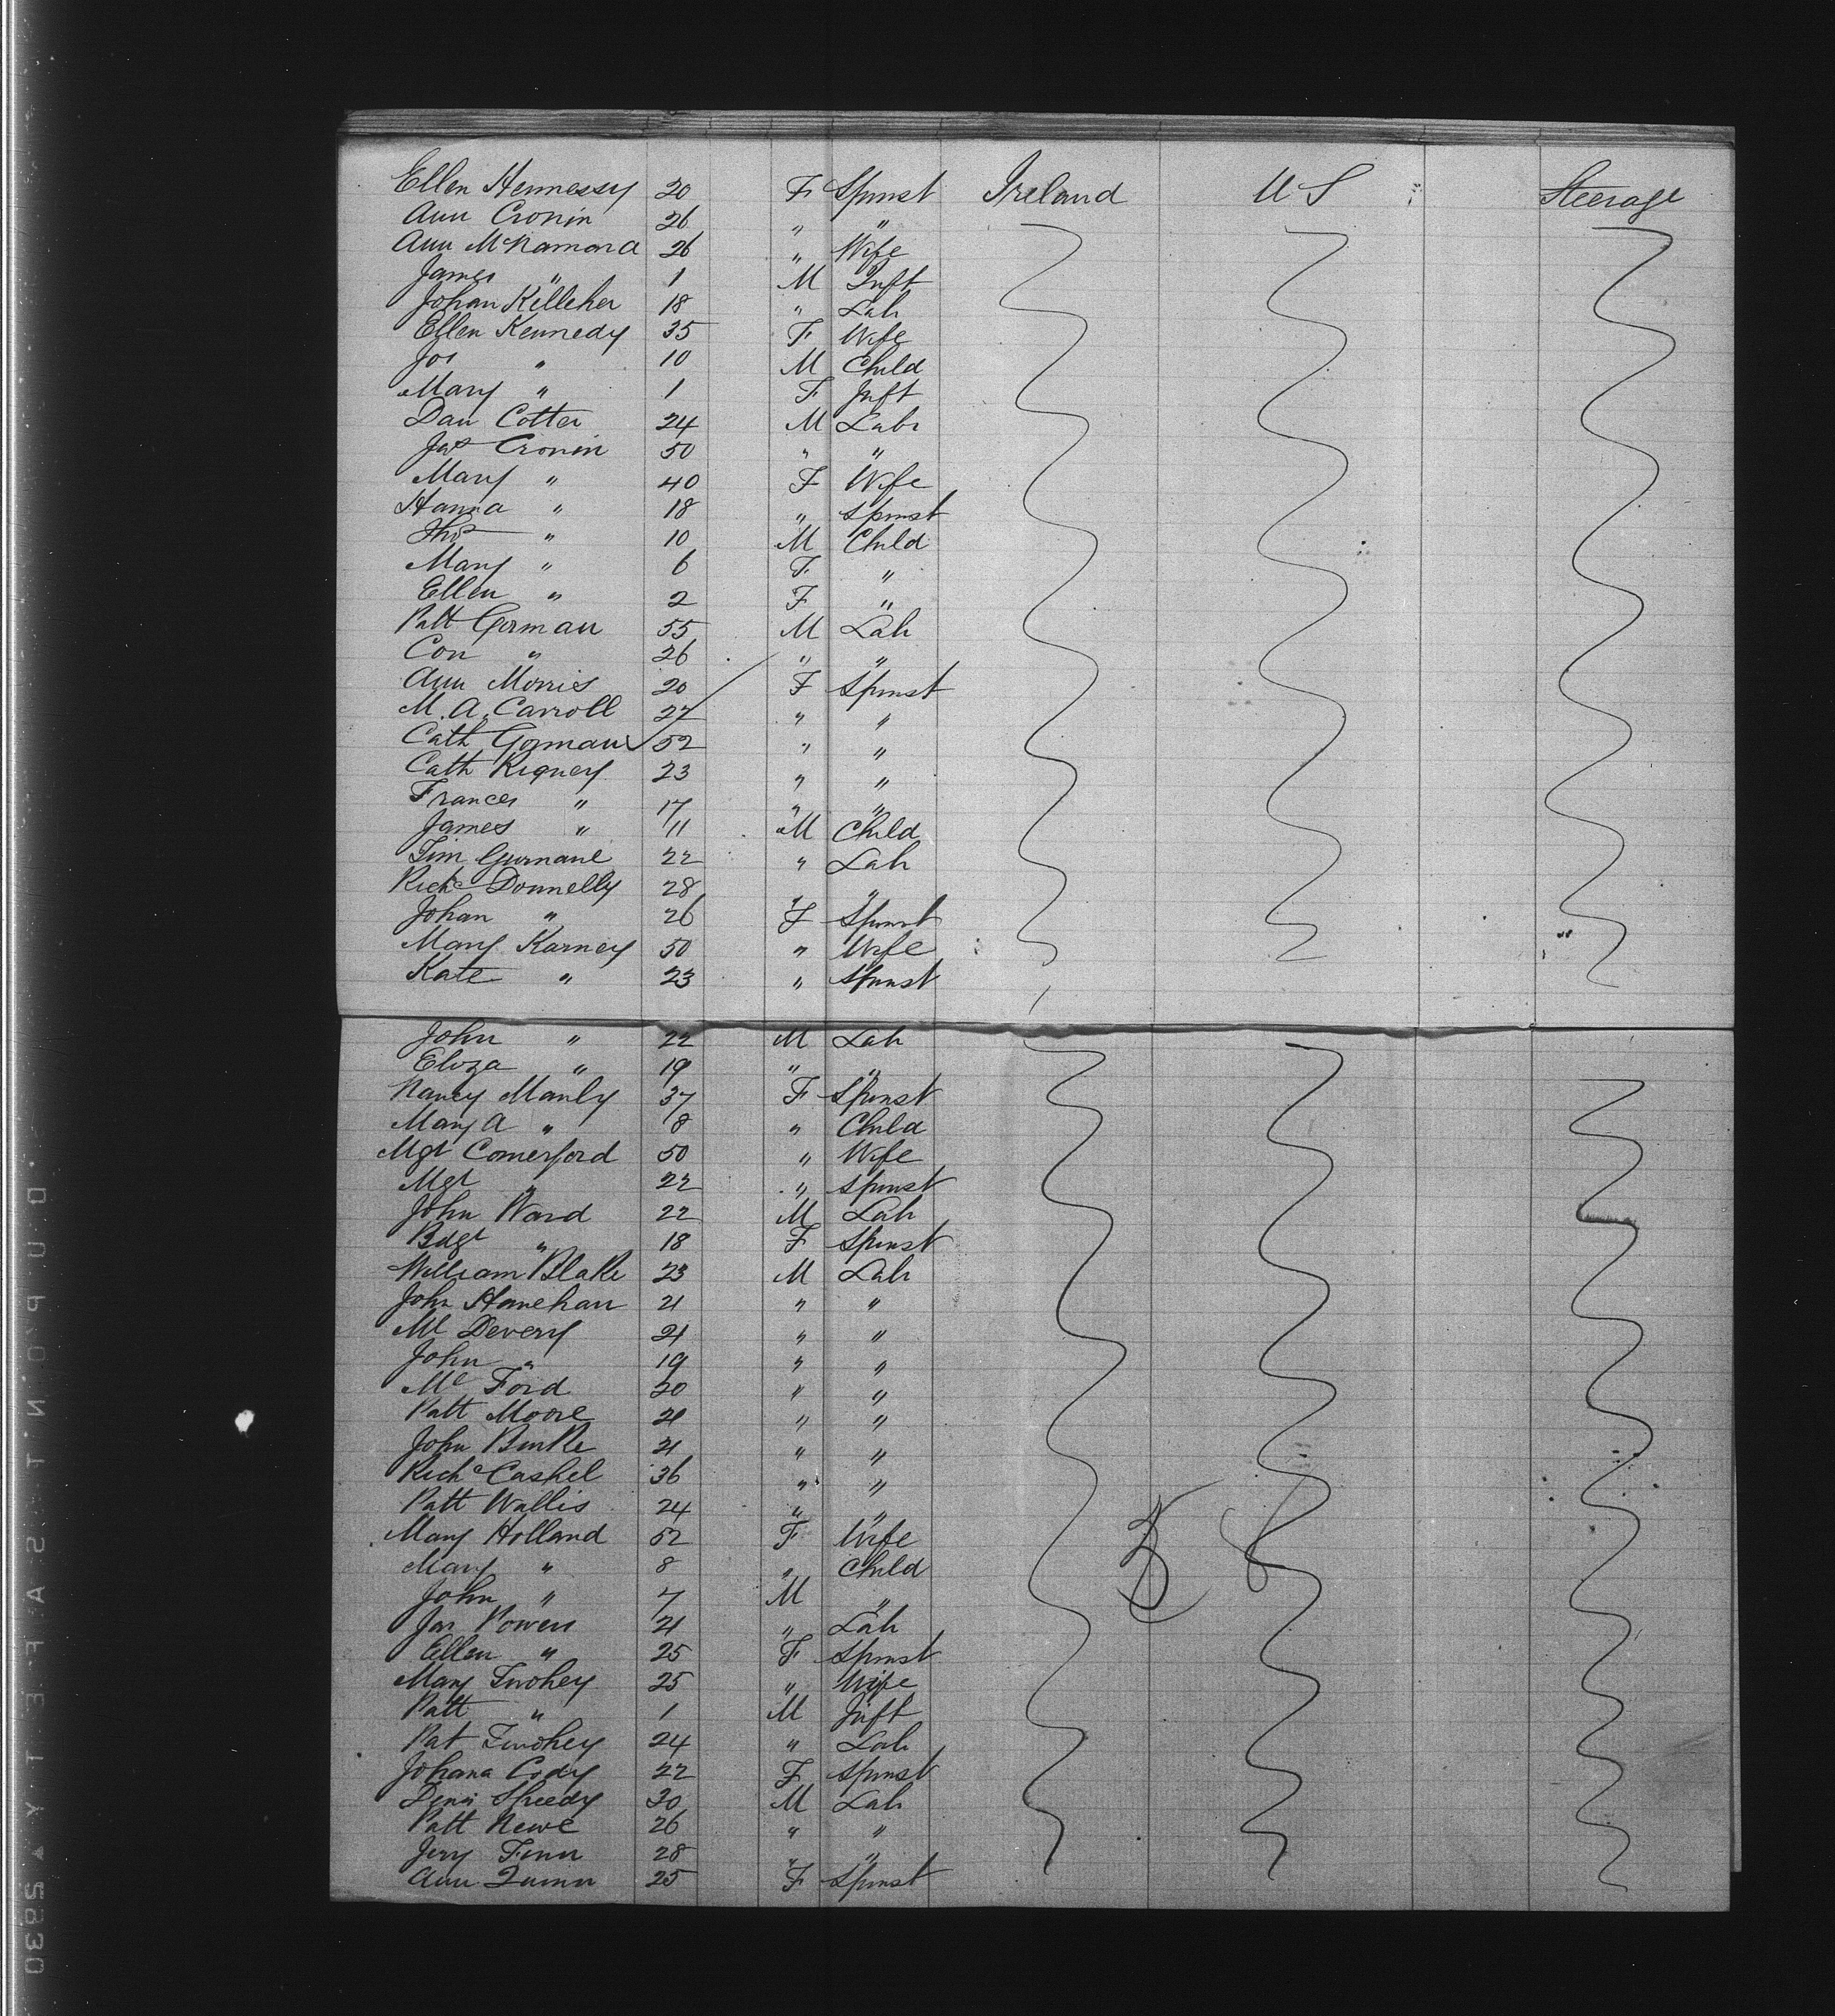 Ellen Hennessy 20 F Spinst Ireland U S Steerage
Ann Cronin 26 " "
Ann McNamara 26 " Wife
James " 1 M Inft
Johan Kelleher 18 " Lab
Ellen Kennedy 35 F Wife
Jos " 10 M Child
Mary " 1 F Inft
Dan Cotter 24 M Labr
Jas Cronin 50 " "
Mary " 40 F Wife
Hanna " 18 " Spinst
Thos " 10 M Child
Mary " 6 F "
Ellen " 2 F "
Patt Gorman 55 M Lab
Con " 26 " "
Ann Morris 20 F Spinst
M. A. Carroll 27 " "
Cath Gorman 52 " "
Cath Rigney 23 " "
Frances " 17 " "
James " 11 M Child
Tim Gurnane 22 " Lab
Richd Donnelly 28 " "
Johan " 26 F Spinst
Mary Karney 50 " Wife
Kate " 23 " Spinst
John " 22 M Lab
Eliza " 19 " "
Nancy Manly 37 F Spinst
Mary A " 8 " Child
Mgt Comerford 50 " Wife
Mgt " 22 " Spinst
John Ward 22 M Lab
Bdgt " 18 F Spinst
William Blake 23 M Lab
John Hanehan 21 " "
Ml Devery 21 " "
John " 19 " "
Ml Ford 20 " "
Patt Moore 21 " "
John Burke 21 " "
Richd Cashel 36 " "
Patt Wallis 24 " "
Mary Holland 52 F Wife
Mary " 8 " Child
John " 7 M "
Jas Powers 21 " Lab
Ellen " 25 F Spinst
Mary Twohey 25 " Wife
Patt " 1 M Inft
Pat Twohey 24 " Lab
Johana Cody 22 F Spinst
Denis Sheedy 30 M Lab
Patt Newe 26 " "
Jery Finn 28 " "
Ann Quinn 25 F Spinst